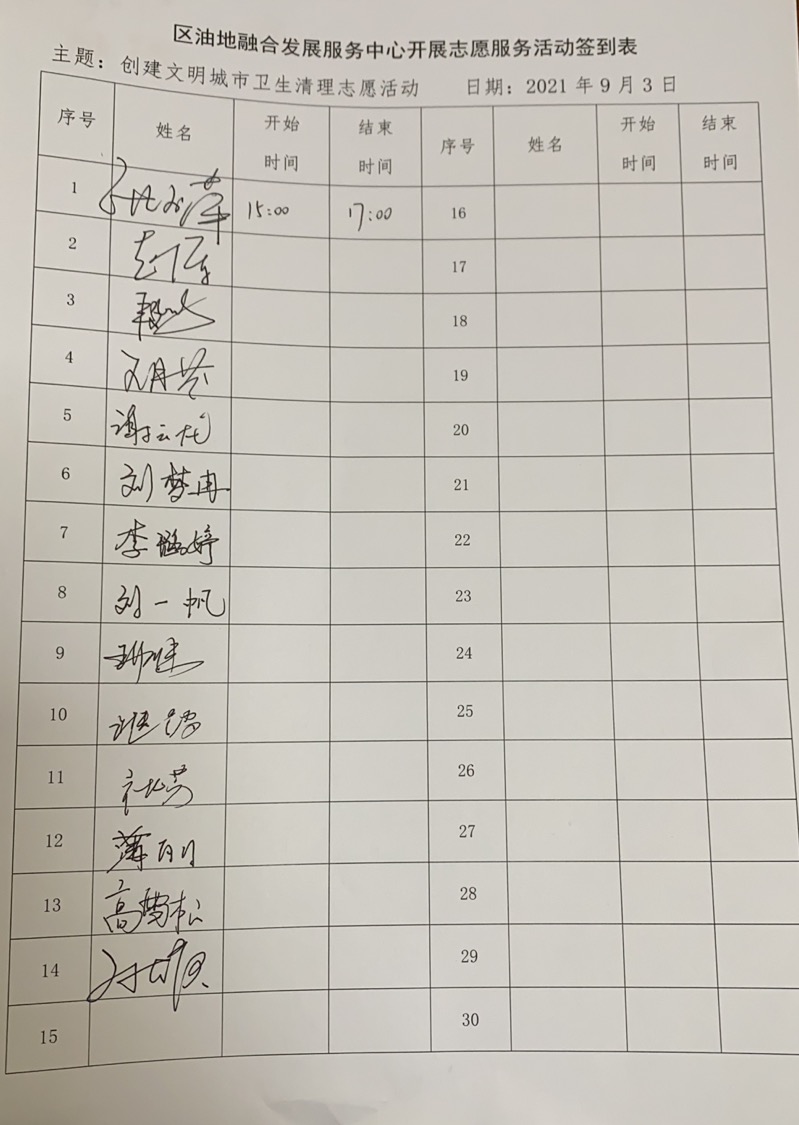 区油地融合发展服务中心开展志愿服务活动签到表
主题：创建文明城市卫生清理志愿活动 日期：2021 年 9 月 3 日
序号 姓名 开始时间 结束时间 序号 姓名 开始时间 结束时间
1 15:00 17:00 16
2 17
3 18
4 19
5 谢云龙 20
6 刘梦冉 21
7 李璐婷 22
8 刘一帆 23
9 24
10 25
11 26
12 27
13 高雪松 28
14 29
15 30